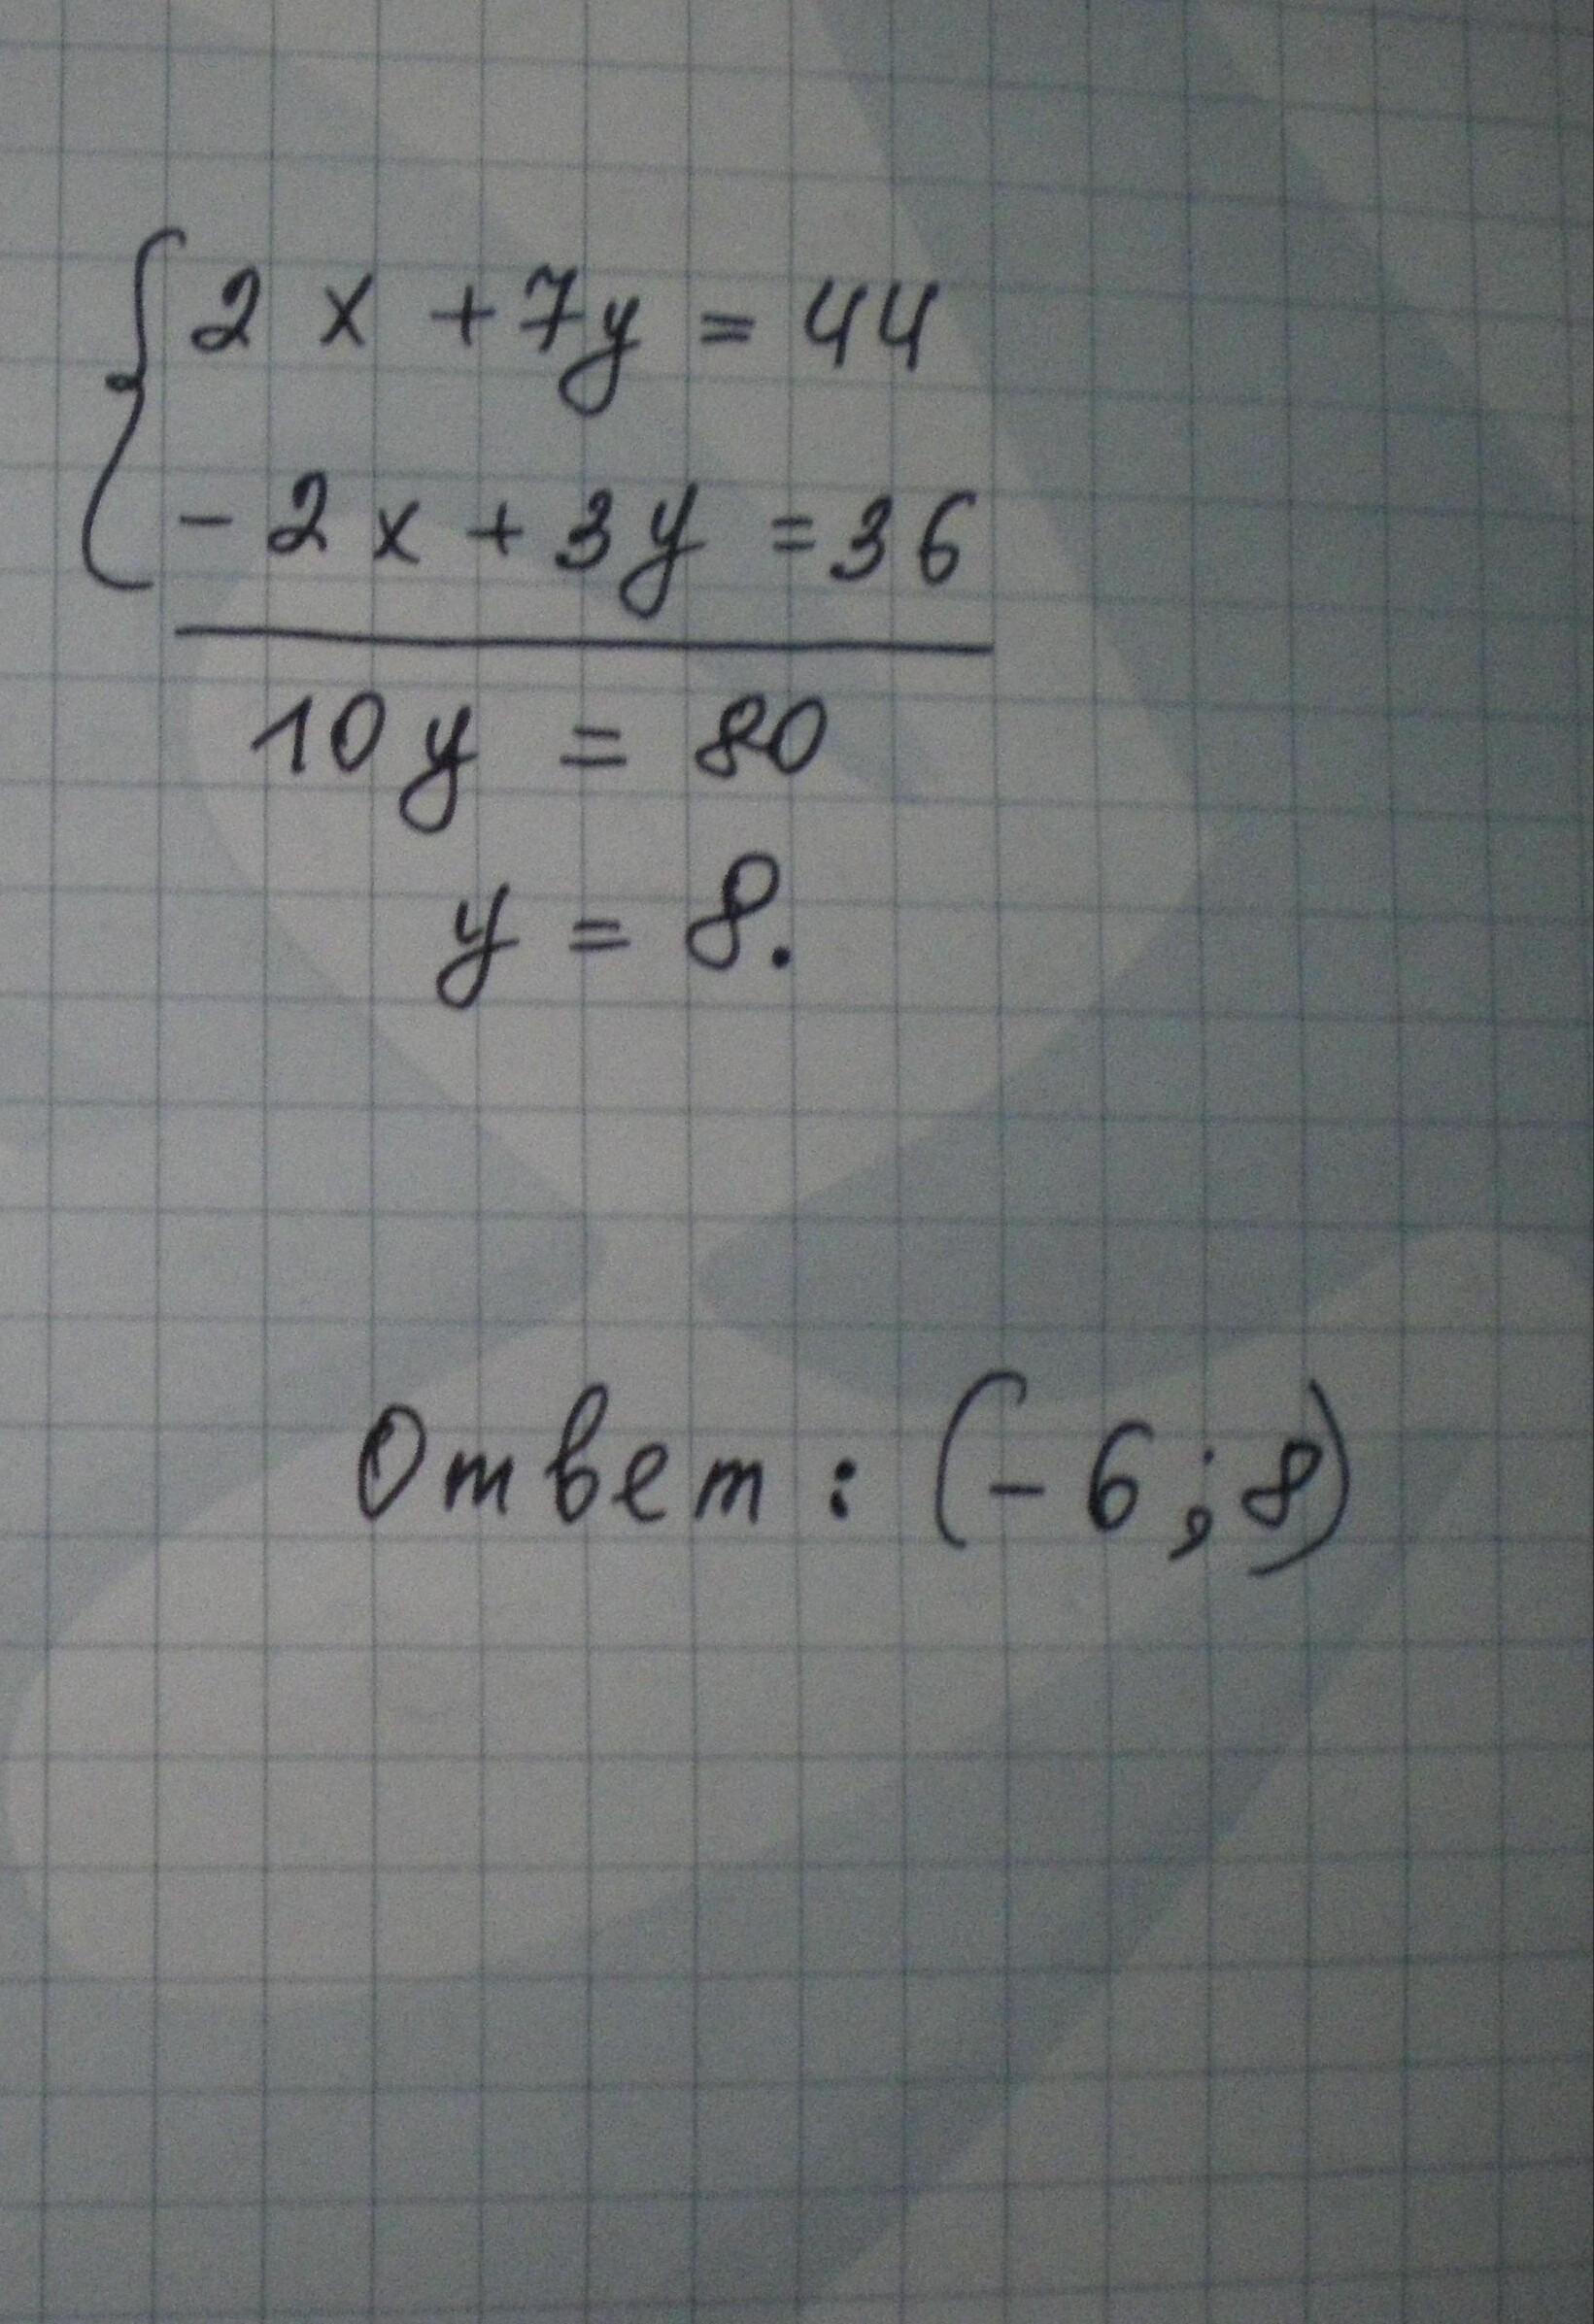 2x + 7y = 44
- 2x + 3y = 36
10y = 80
y = 8.
Ответ: (-6; 8)